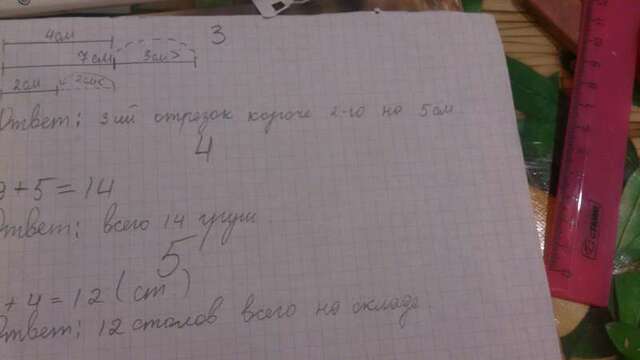 3
4см
7см
3см
2см
2см
Ответ: 3ий отрезок короче 2-го на 5см.
4
9+5=14
Ответ: всего 14 груш.
5
+4=12 (ст)
Ответ: 12 столов всего на складе.
СТАММ